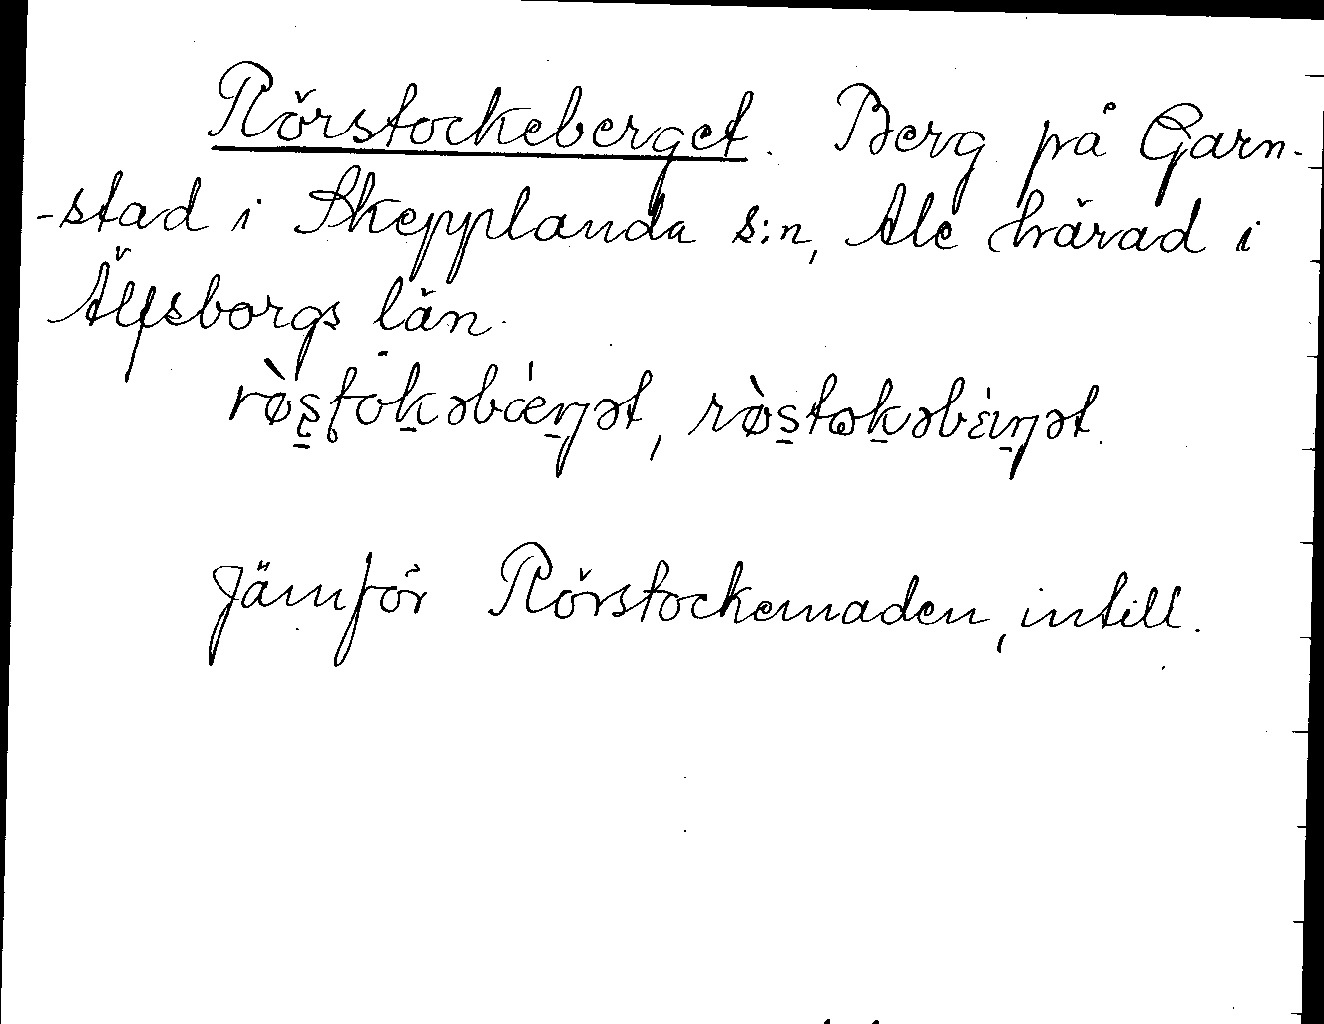 Rörstockeberget. Berg på Garn-
-stad i Skepplanda s:n, Ale härad i
Älfsborgs län.
rø̀s̱tok̠əbǽṉət, rø̀s̱tok̠əbέiṉət.
Jämför Rörstockemaden, intill.